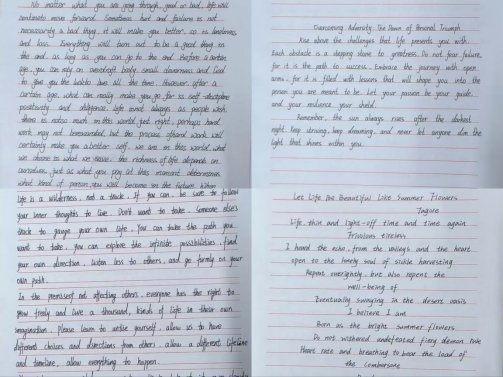 No matter what you are going through, good or bad, life will
continue move forward. Sometimes hurt and failure is not
necessarily a bad thing, it will make you better, so is loneliness
and loss. Everything will turn out to be a good thing in
the end, as long as you can go to the end. Before a certain
age, you can rely on
to give you the
certain age, what can really make you go far is self-discipline
positivity and diligence. Life is not always as people wish,
there is not so much in this world just right, perhaps hard
work may not be rewarded, but the process of hard work will
certainly make you a better self. we are in this world, what
we choose is what we
ourselves, just as what you pay at this moment determines
what kind of person you will become in the future. When
Life is a wilderness, not a track. If you can, be sure to follow
your inner thoughts to live. Don't want to take someone else's
track to gauge your own life. You can take the path you
want to take, you can explore the infinite possibilities, find
your own direction, listen less to others, and go firmly on your
own path.
In the premise of not affecting others, everyone has the right to
grow freely and live a thousand kinds of life in their own
imagination. Please learn to untie yourself, allow us to have
different choices and directions from others, allow a different lifeline
and timeline, allow everything to happen.
Overcoming Adversity: The Dawn of Personal Triumph
Rise above the challenges that life presents you with.
Each obstacle is a stepping stone to greatness. Do not fear failure,
for it is the path to success. Embrace the journey with open
arms, for it is filled with lessons that will shape you into the
person you are meant to be. Let your passion be your guide,
and your resilience, your shield.
Remember, the sun always rises after the darkest
night. Keep striving, keep dreaming, and never let anyone dim the
light that shines within you.
Let Life Be Beautiful Like Summer Flowers
Tagore
Life, thin and light-off time and time again
Frivolous tireless
I heard the echo, from the valleys and the heart
open to the lonely soul of sickle harvesting
Repeat outrightly, but also repeat the
well-being of
Eventually swaying in the desert oasis
I believe I am
Born as the bright summer flowers
Do not withered undefeated fiery demon rule
Heart rate and breathing to bear the load of
the cumbersome